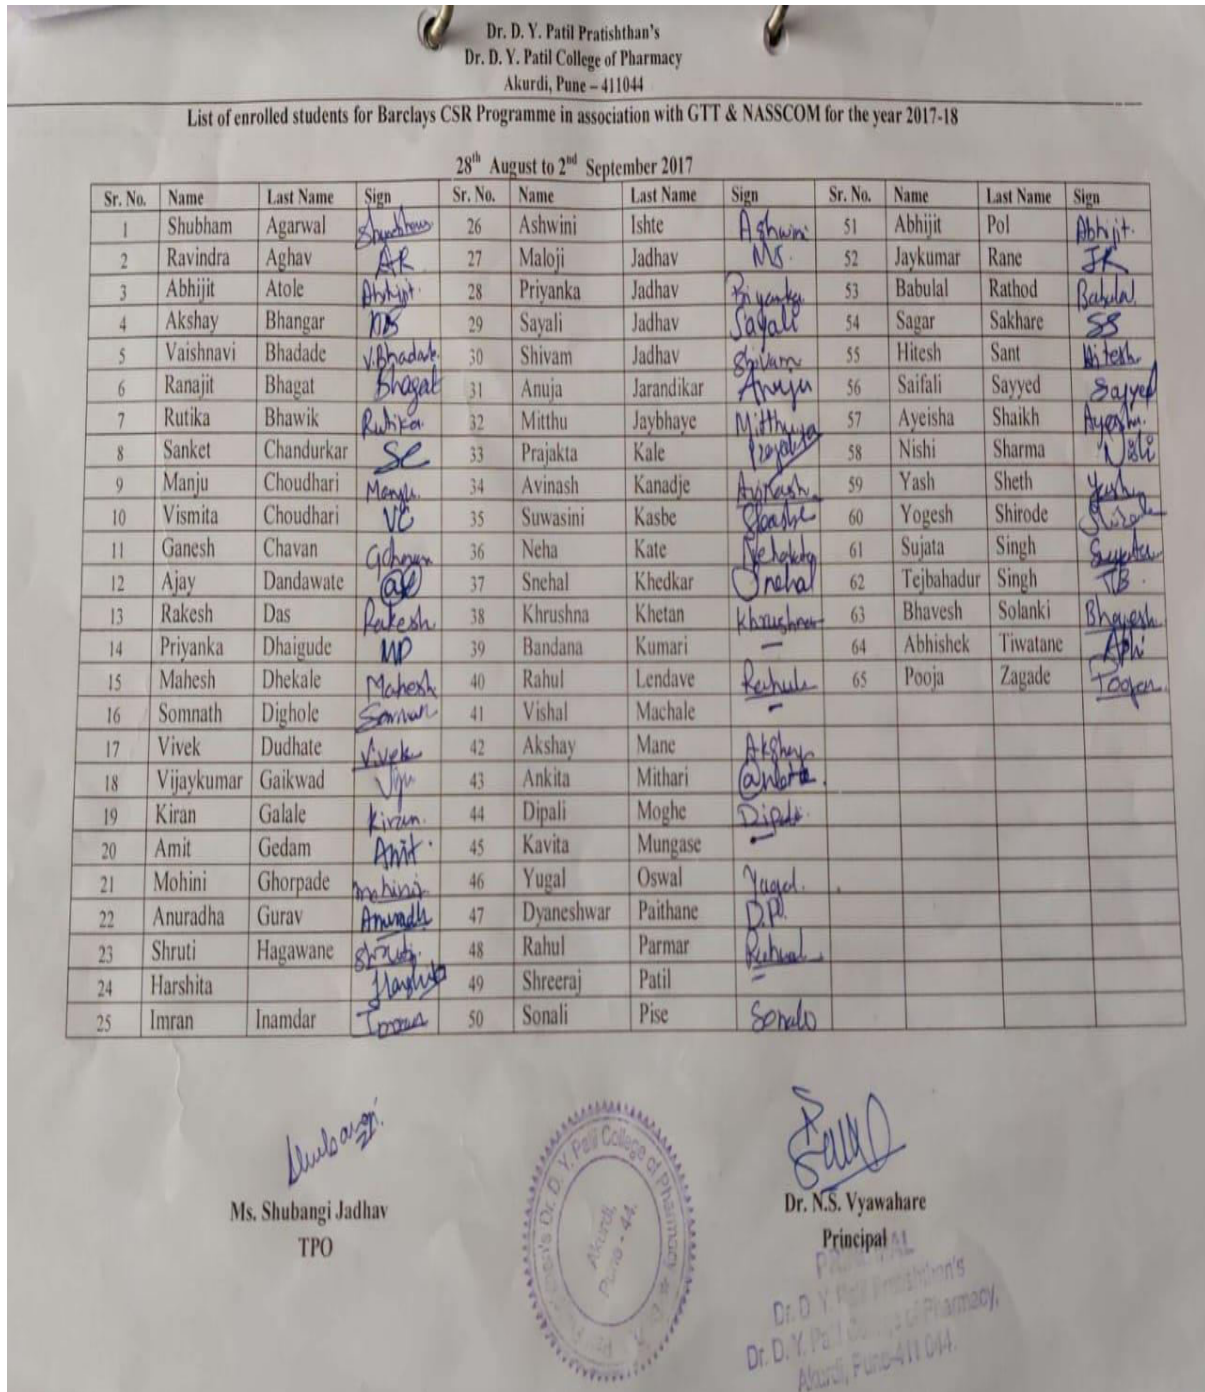 Dr. D. Y. Patil Pratishthan's
Dr. D. Y. Patil College of Pharmacy
Akurdi, Pune – 411044
List of enrolled students for Barclays CSR Programme in association with GTT & NASSCOM for the year 2017-18
28th August to 2nd September 2017
Sr. No. Name Last Name Sign Sr. No. Name Last Name Sign Sr. No. Name Last Name Sign
1 Shubham Agarwal 26 Ashwini Ishte Ashwini 51 Abhijit Pol Abhijit.
2 Ravindra Aghav AR 27 Maloji Jadhav MS. 52 Jaykumar Rane JR
3 Abhijit Atole Abhijit. 28 Priyanka Jadhav Priyanka 53 Babulal Rathod Babulal
4 Akshay Bhangar 29 Sayali Jadhav Sayali 54 Sagar Sakhare SS
5 Vaishnavi Bhadade V.Bhadade 30 Shivam Jadhav Shivam 55 Hitesh Sant Hitesh
6 Ranajit Bhagat Bhagat 31 Anuja Jarandikar Anuja 56 Saifali Sayyed Sayyed
7 Rutika Bhawik Rutika 32 Mitthu Jaybhaye 57 Ayeisha Shaikh Ayesha
8 Sanket Chandurkar SC 33 Prajakta Kale Prajakta 58 Nishi Sharma Nishi
9 Manju Choudhari Manju. 34 Avinash Kanadje Avinash 59 Yash Sheth Yash
10 Vismita Choudhari VC 35 Suwasini Kasbe 60 Yogesh Shirode Shirode
11 Ganesh Chavan 36 Neha Kate Nehakate 61 Sujata Singh Sujata
12 Ajay Dandawate 37 Snehal Khedkar Snehal 62 Tejbahadur Singh TB.
13 Rakesh Das Rakesh 38 Khrushna Khetan Khrushna 63 Bhavesh Solanki Bhavesh
14 Priyanka Dhaigude 39 Bandana Kumari – 64 Abhishek Tiwatane Abhi
15 Mahesh Dhekale Mahesh 40 Rahul Lendave Rahul 65 Pooja Zagade Pooja
16 Somnath Dighole 41 Vishal Machale –
17 Vivek Dudhate Vivek 42 Akshay Mane Akshay
18 Vijaykumar Gaikwad Viju 43 Ankita Mithari
19 Kiran Galale Kiran. 44 Dipali Moghe Dipali
20 Amit Gedam Amit. 45 Kavita Mungase –
21 Mohini Ghorpade Mohini 46 Yugal Oswal Yugal.
22 Anuradha Gurav Anuradh 47 Dyaneshwar Paithane D.P.
23 Shruti Hagawane Shruti 48 Rahul Parmar Rahul
24 Harshita Harshita 49 Shreeraj Patil –
25 Imran Inamdar Imran 50 Sonali Pise Sonali
Shubangi
Ms. Shubangi Jadhav
TPO
Dr. D. Y. Patil College of Pharmacy
Akurdi,
Pune - 44.
Dr. N.S. Vyawahare
Principal
PRINCIPAL
Dr. D. Y. Patil Pratishthan's
Dr. D. Y. Patil College of Pharmacy,
Akurdi, Pune-411 044.